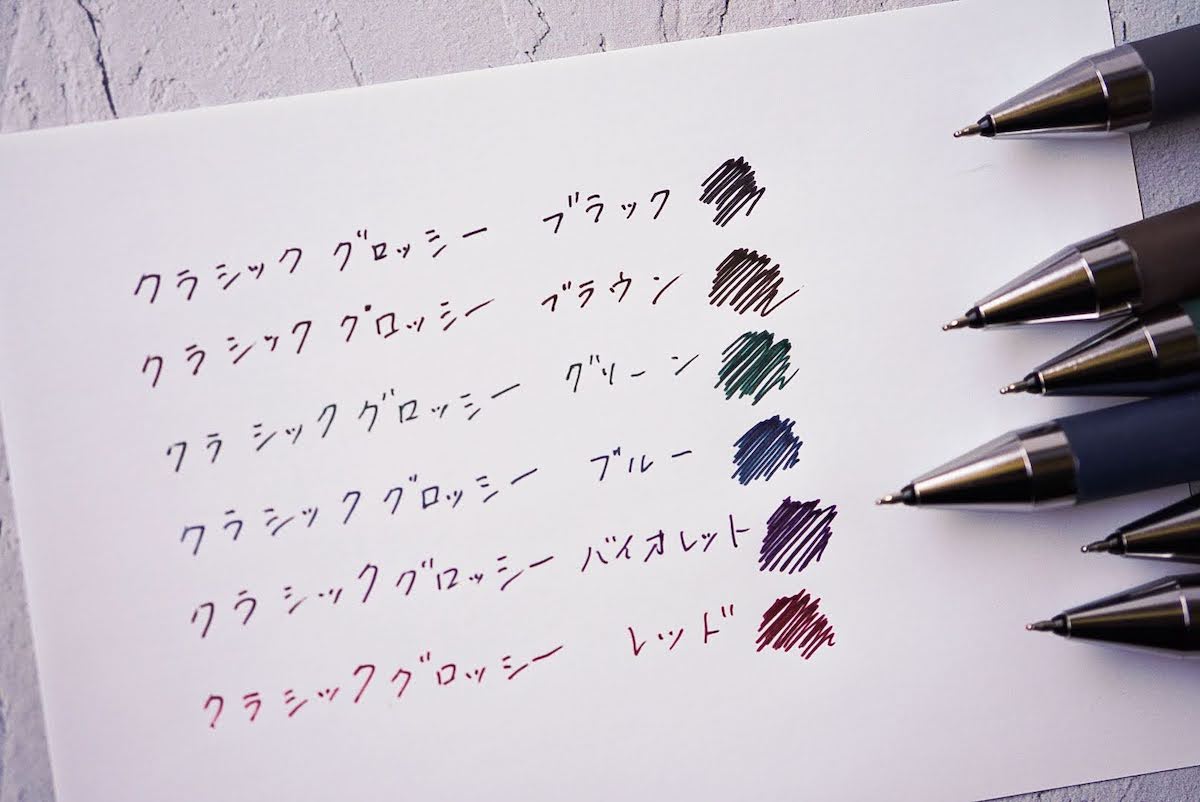 クラシック グロッシー ブラック
クラシック グロッシー ブラウン
クラシック グロッシー グリーン
クラシック グロッシー ブルー
クラシック グロッシー バイオレット
クラシック グロッシー レッド